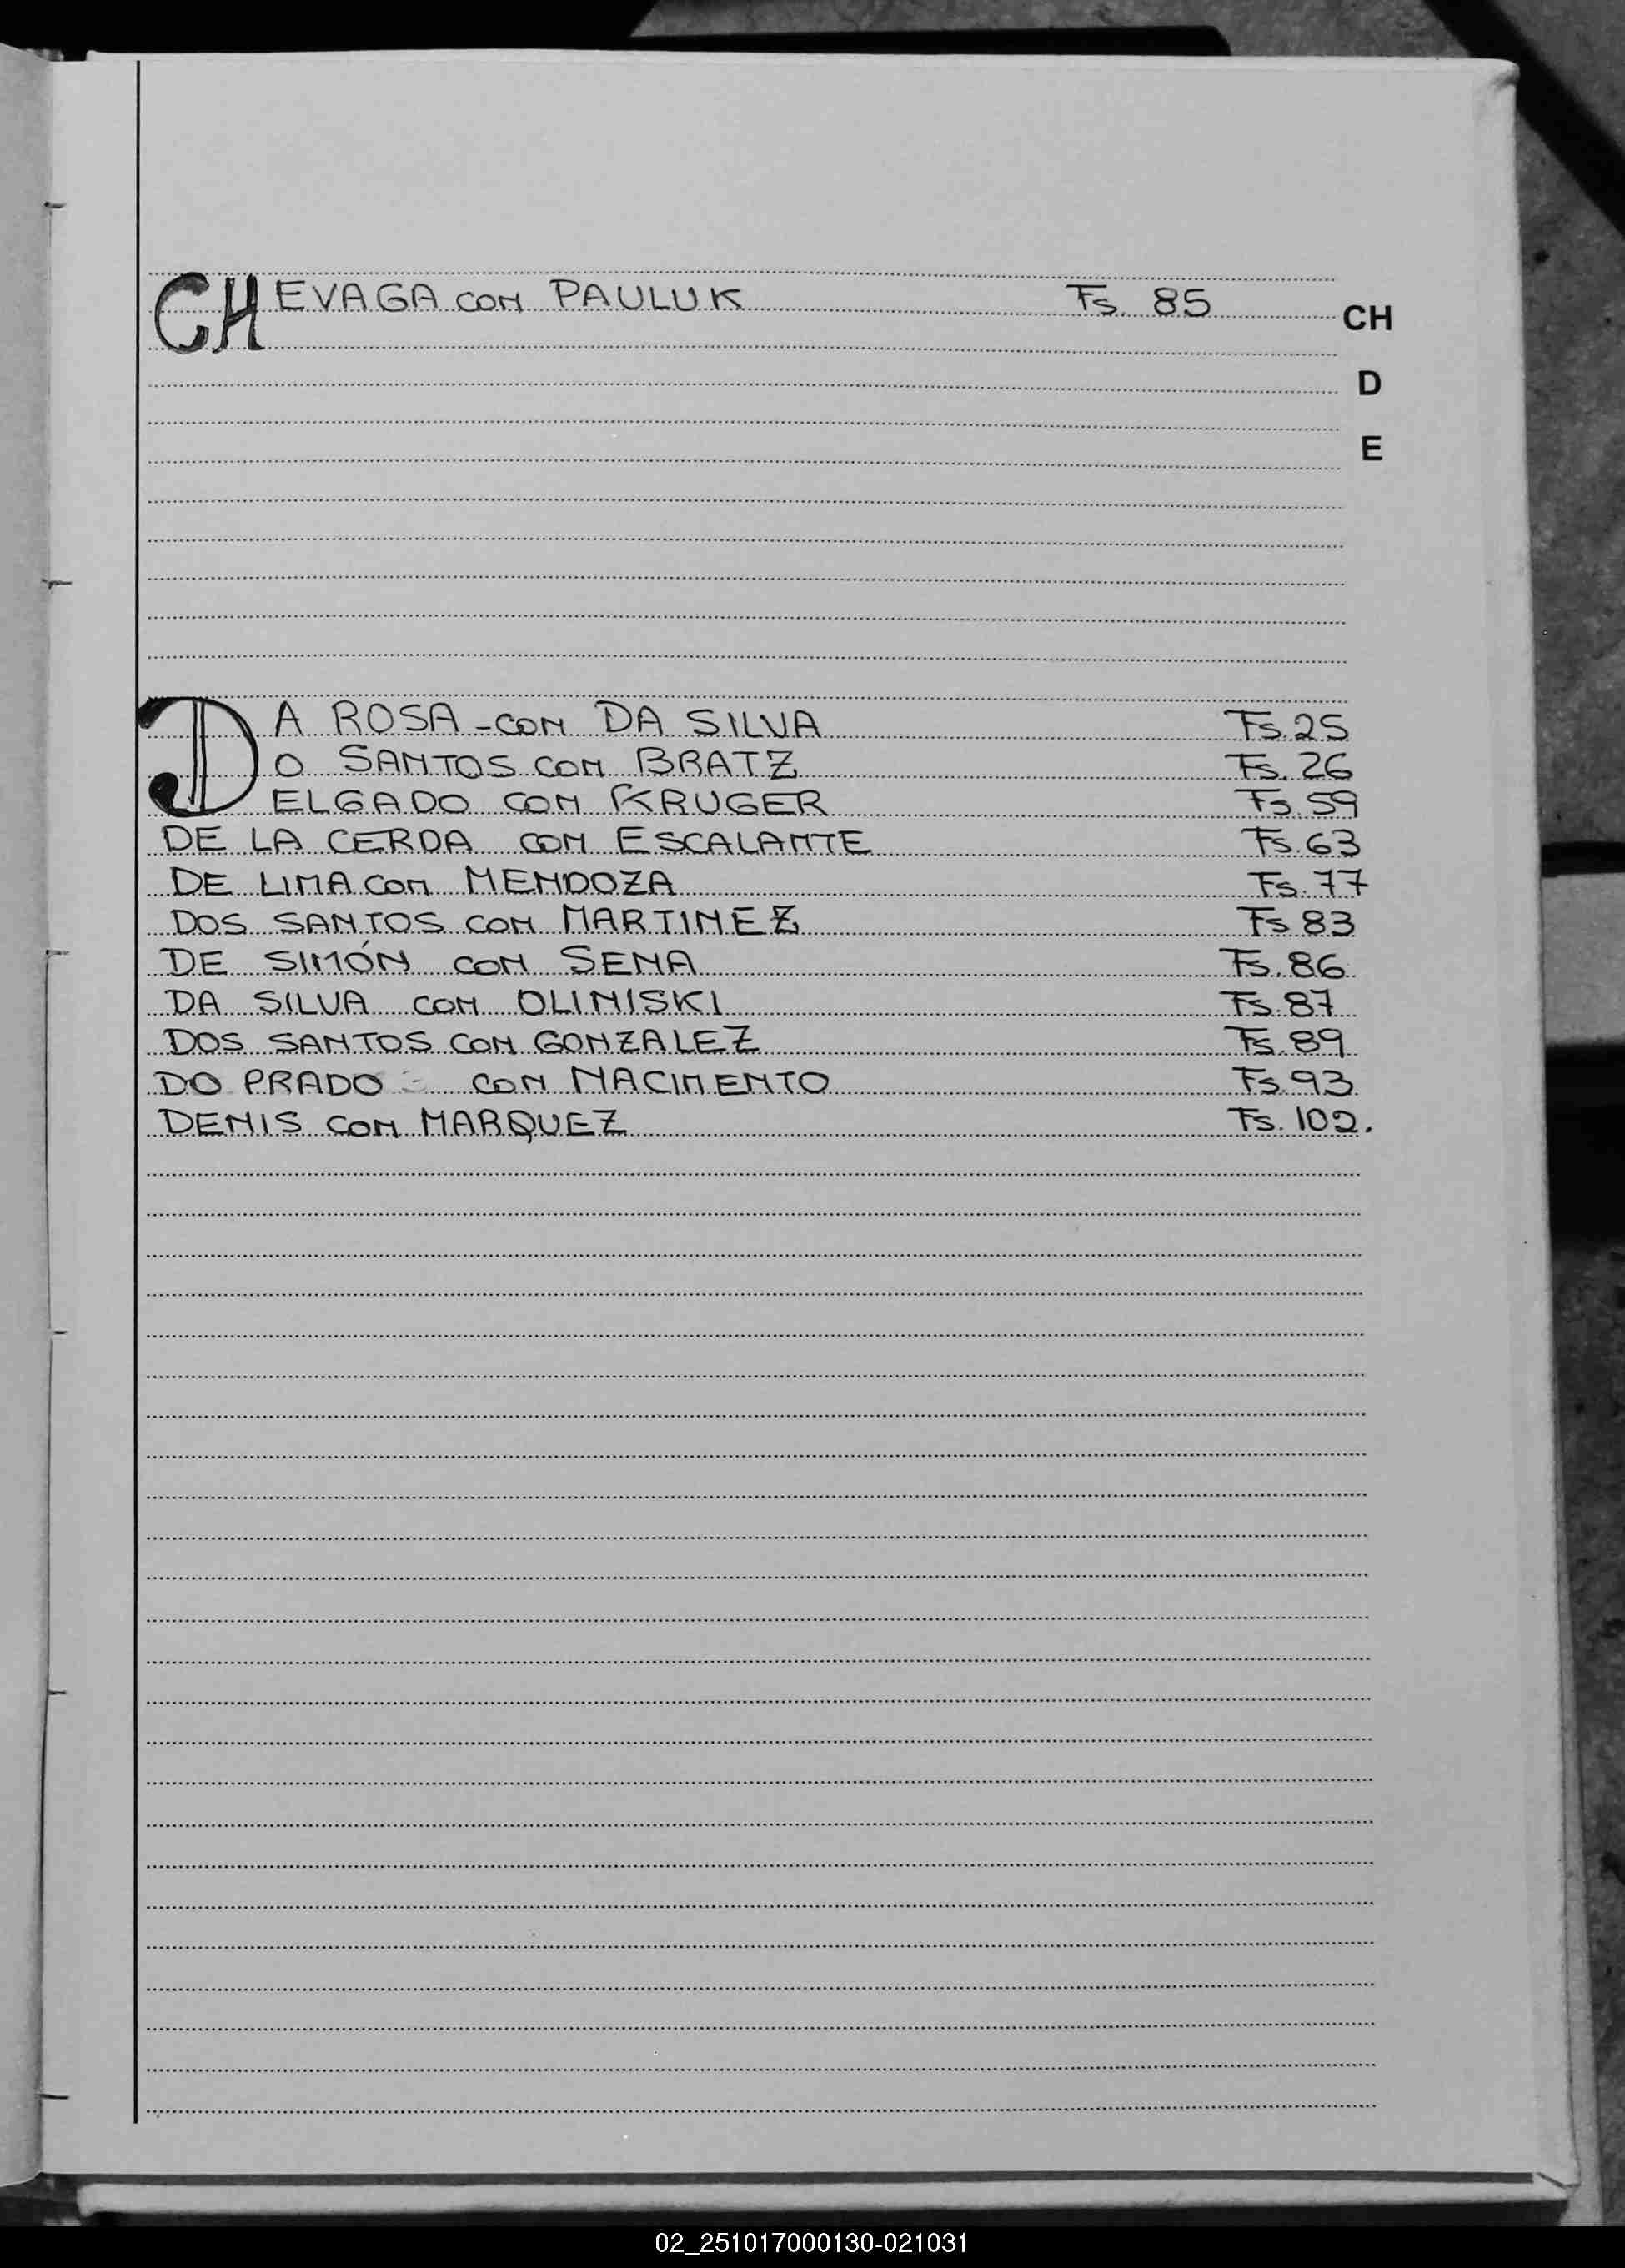 CHEVAGA CON PAULUK Fs. 85 CH
D
E
DA ROSA - CON DA SILVA Fs. 25
DO SANTOS CON BRATZ Fs. 26
DELGADO CON KRUGER Fs. 59
DE LA CERDA CON ESCALANTE Fs. 63
DE LIMA CON MENDOZA Fs. 77
DOS SANTOS CON MARTINEZ Fs 83
DE SIMÓN CON SENA Fs. 86
DA SILVA CON OLINISKI Fs. 87
DOS SANTOS CON GONZALEZ Fs. 89
DO PRADO - CON NACIMENTO Fs. 93
DENIS CON MARQUEZ Fs. 102.
02_251017000130-021031